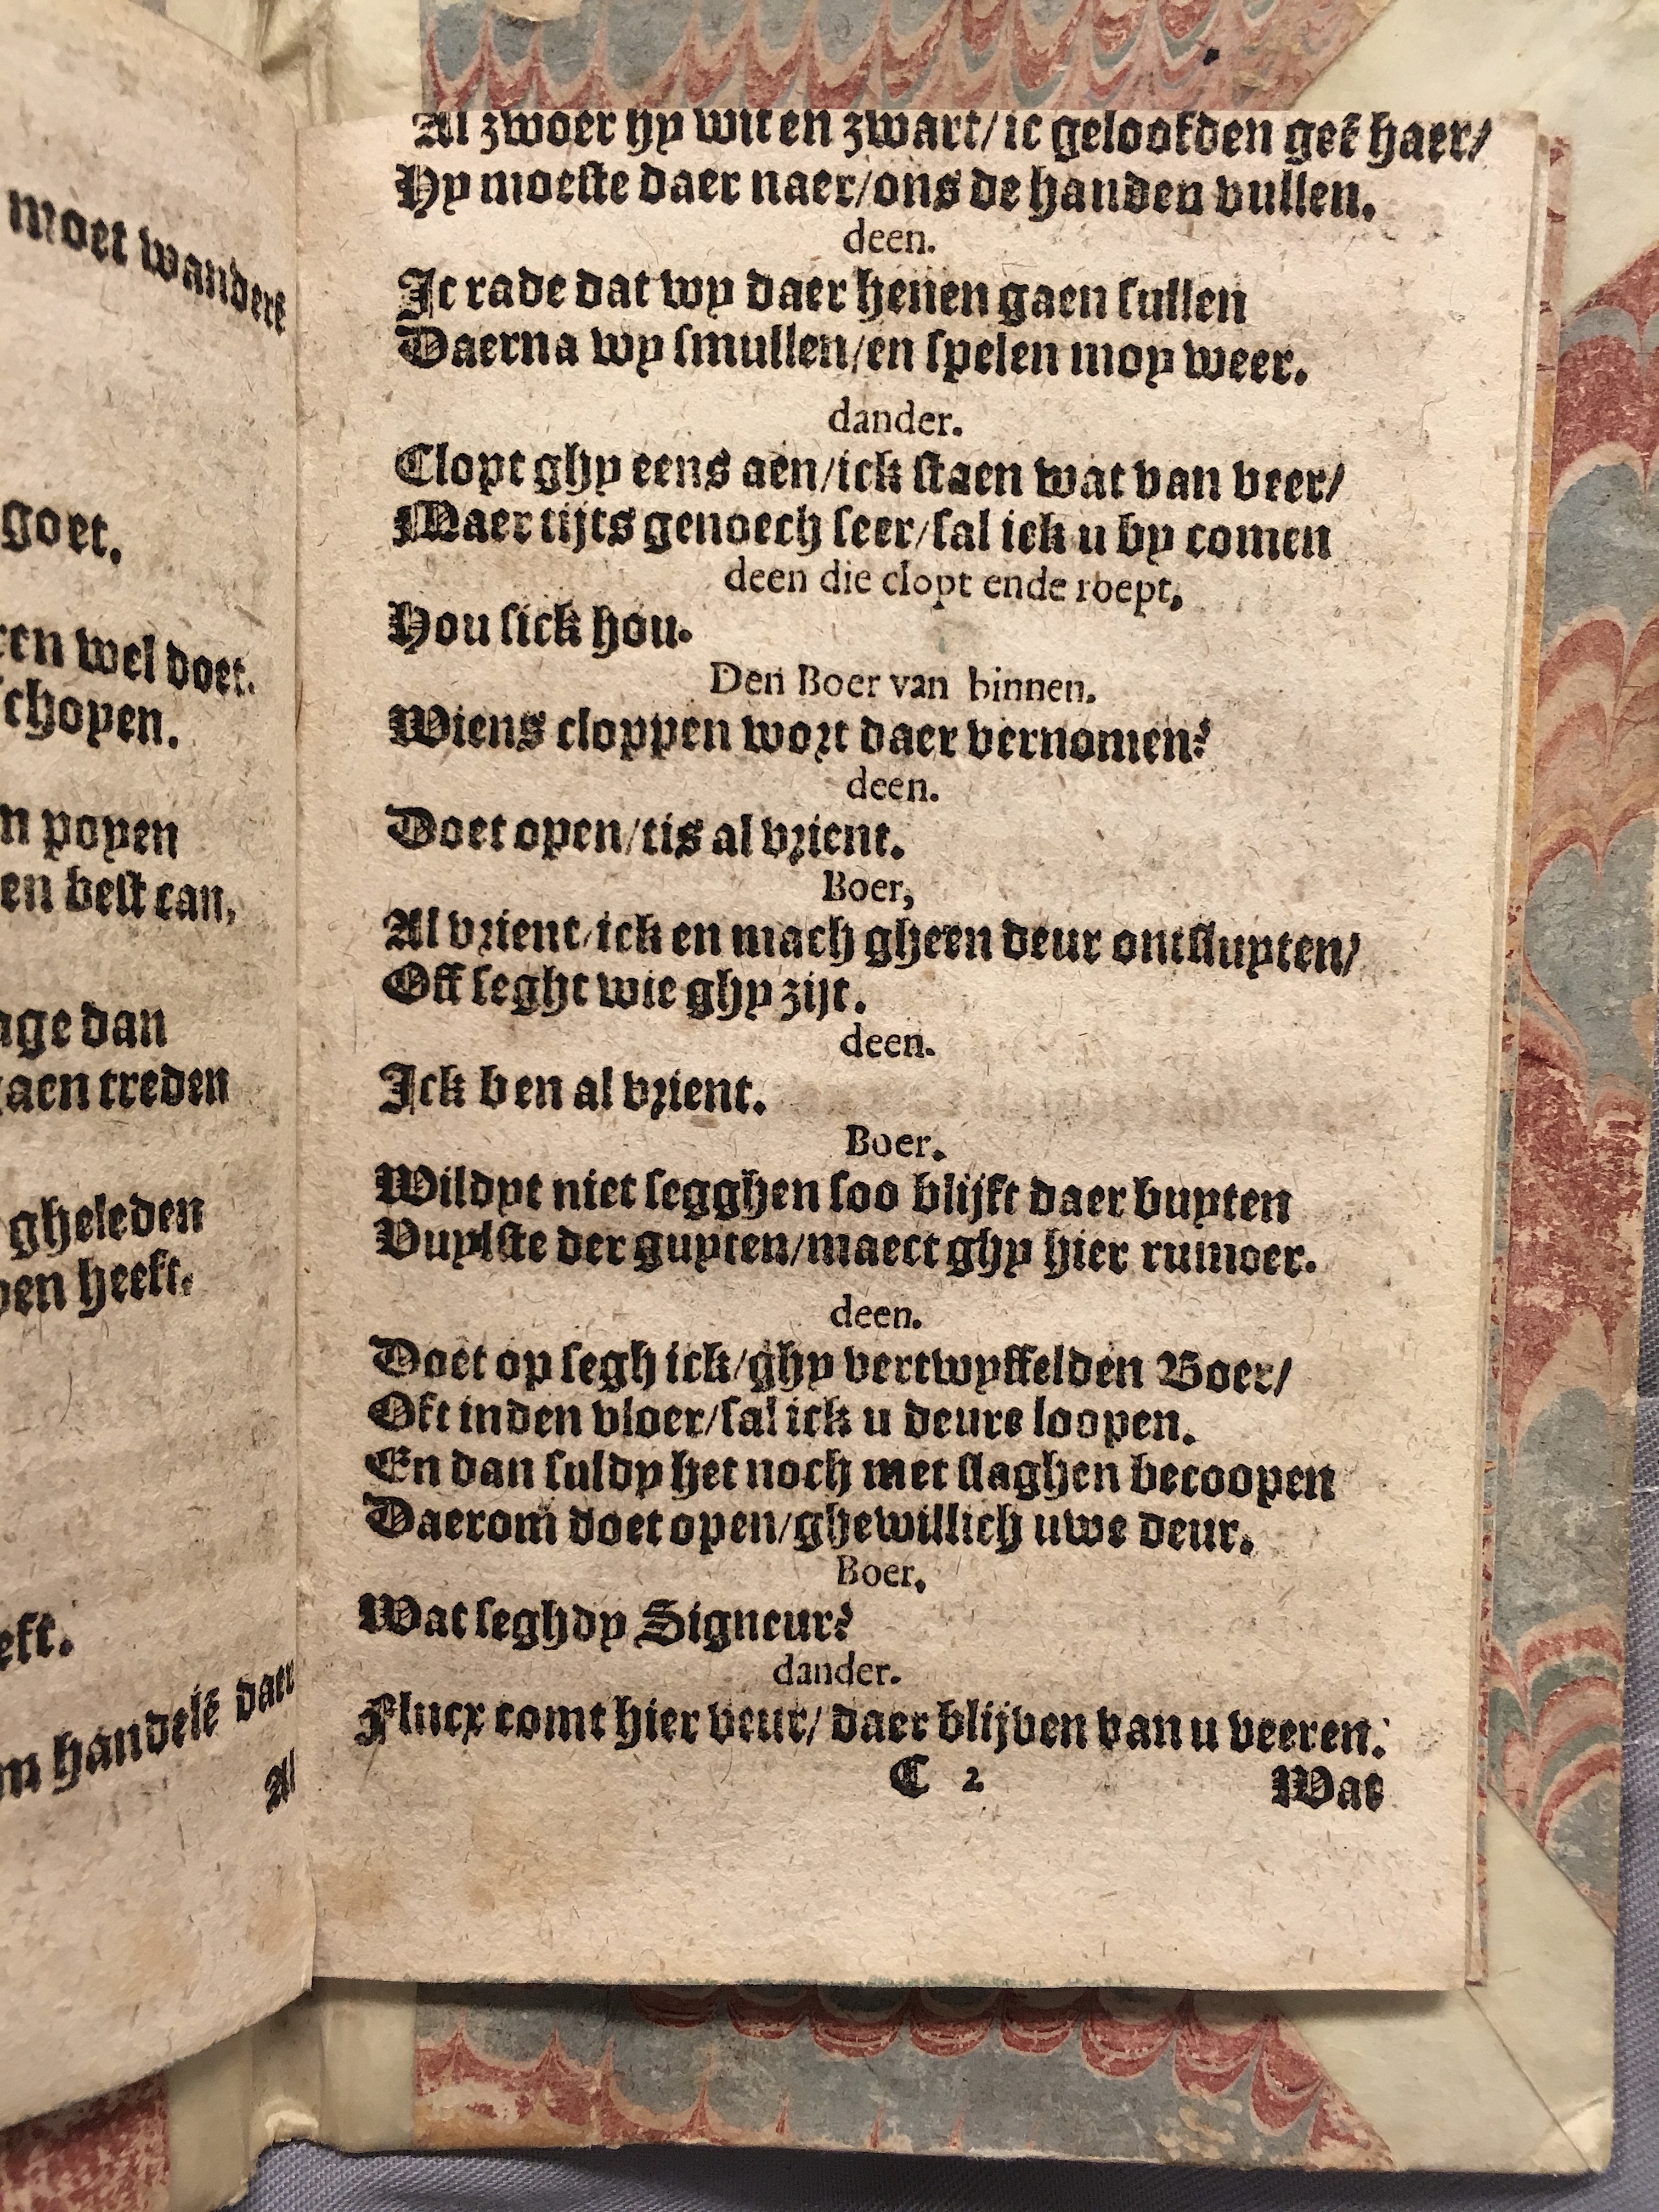 moet wanderē
goet.
en wel doet.
schopen.
n popen
en best can,
age dan
aen treden
gheleden
en heeft.
eft.
m handelē daer
Al
Al zwoer hy wit en zwart/ ic geloofden geē haer/
Hy moeste daer naer/ons de handen vullen.
deen.
Ic rade dat wy daer henen gaen sullen
Daerna wy smullen/en spelen moy weer.
dander.
Clopt ghy eens aen/ick staen wat van veer/
Maer tijts genoech seer/sal ick u by comen
deen die clopt ende roept,
Hou sick hou.
Den Boer van binnen.
Wiens cloppen wort daer vernomen?
deen.
Doet open/tis al vrient.
Boer,
Al vrient/ick en mach gheen deur ontsluyten/
Off seght wie ghy zijt.
deen.
Ick ben al vrient.
Boer.
Wildyt niet segghen soo blijft daer buyten
Vuylste der guyten/maect ghy hier rumoer.
deen.
Doet op segh ick/ghy vertwyffelden Boer/
Oft inden vloer/sal ick u deure loopen.
En dan suldy het noch met slaghen becoopen
Daerom doet open/ghewillich uwe deur.
Boer,
Wat seghdy Signeur?
dander.
Flucx comt hier veur/ daer blijven van u veeren.
C 2
Wat